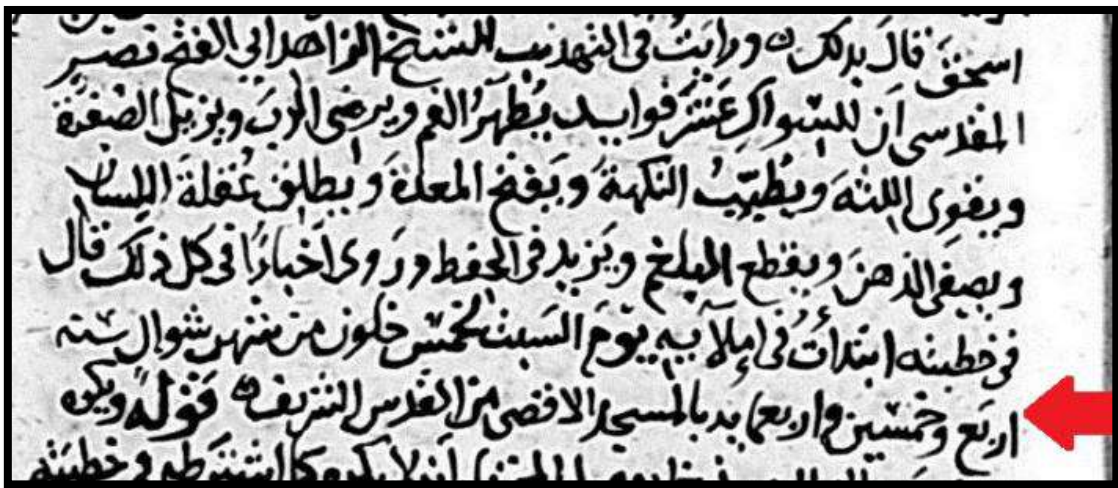 اسحق قال بذلك ه ورايت في التهذيب للشيخ الزاهد ابي الفتح نصير
المقدسي ان للسواك عشر فوايد يُطهرُ الفم ويرضى الرب ويزيل الصفرة
ويقوي اللثه ويُطيّبُ النكهة ويَفتح المعدة ويطلق عُقلة اللسان
ويصفي الذهن ويقطع البلغم ويَزيد في الحفظ وروى اخبارًا في كل ذلك قال
في خطبته ابتدأتُ في إملآييه يوم السبت لخمس خلون من شهر شوال سنه
اربع وخمسين واربعمايه بالمسجد الاقصى من القدس الشريف ه قوله ويكره